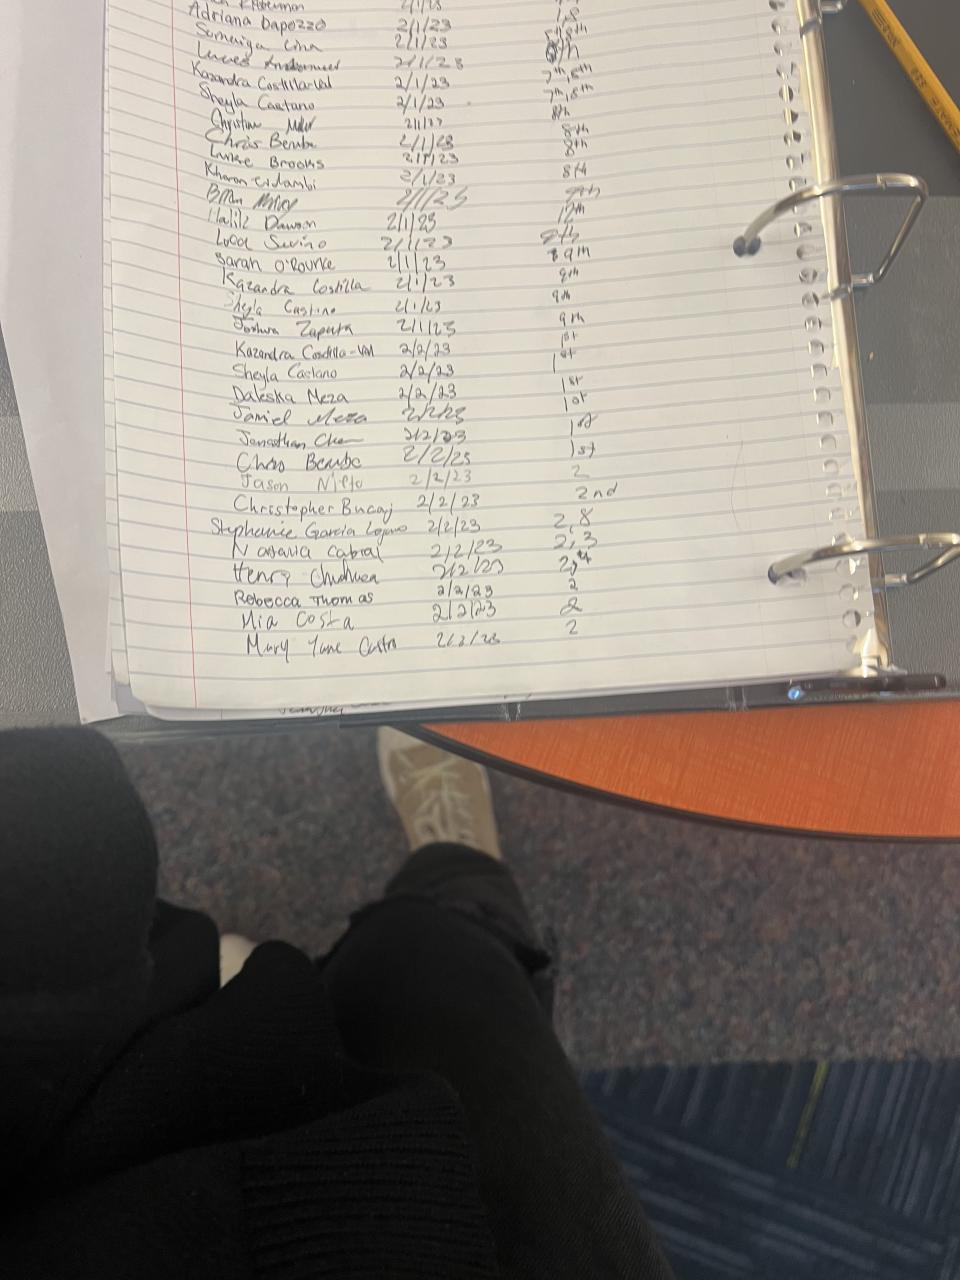 Adriana Dapozzo 2/1/23 1,8
2/1/23
2/1/23
Kazandra Costilla-Val 2/1/23 7th, 8th
Sheyla Caetano 2/1/23 7th, 8th
Christian 2/1/23 8th
Chris Bembe 2/1/23 8th
Brooks 2/1/23 8th
2/1/23 8th
Brian 2/1/23 9th
Dawson 2/1/23 12th
Luca Savino 2/1/23
Sarah O'Rourke 2/1/23 9th
Kazandra Costilla 2/1/23 9th
Sheyla 2/1/23 9th
Joshua Zapata 2/1/23 9th
Kazandra Costilla-Val 2/2/23 1st
Sheyla Caetano 2/2/23 1st
Daleska Meza 2/2/23 1st
Jamiel Meza 2/2/23 1st
Jonathan Chen 2/2/23 1st
Chris Bembe 2/2/23 1st
Jason Nieto 2/2/23 2
Christopher Bucaj 2/2/23 2nd
Stephanie Garcia Lojano 2/2/23 2,8
Cabral 2/2/23 2,3
Henry 2/2/23 2,4
Rebecca Thomas 2/2/23 2
Mia Costa 2/2/23 2
Mary Jane Castro 2/2/23 2